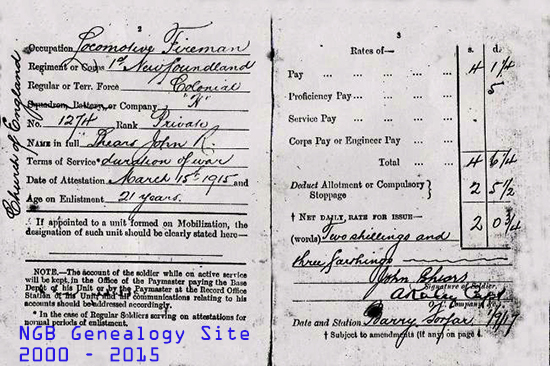 2
Occupation Locomotive Fireman
Regiment or Corps 1st Newfoundland
Regular or Terr. Force Colonial
Squadron, Battery, or Company "N"
No. 1274 Rank Private
NAME in full Shears John R.
Terms of Service duration of war
Date of Attestation March 15th 1915 and
Age on Enlistment 21 years.
If appointed to a unit formed on Mobilization, the
designation of such unit should be clearly stated here—
NOTE.—The account of the soldier while on active service
will be kept in the Office of the Paymaster paying the Base
Depot of his Unit or by the Paymaster at the Record Office
Station of his Unit and his communications relating to his
accounts should be addressed accordingly.
* In the case of Regular Soldiers serving on attestations for
normal periods of enlistment.
Church of England
NGB Genealogy Site
2000 - 2015
3
Rates of— s. d.
Pay ... 4 1¼
Proficiency Pay ... 5
Service Pay ...
Corps Pay or Engineer Pay ...
Total ... 4 6¼
Deduct Allotment or Compulsory Stoppage } 2 5½
† NET DAILY RATE FOR ISSUE— 2 0¾
(words) Two shillings and
three farthings
John Shears
Signature of Soldier.
O.C. Company
Date and Station Barry Forfar /9/17
† Subject to amendments (if any) on page 4